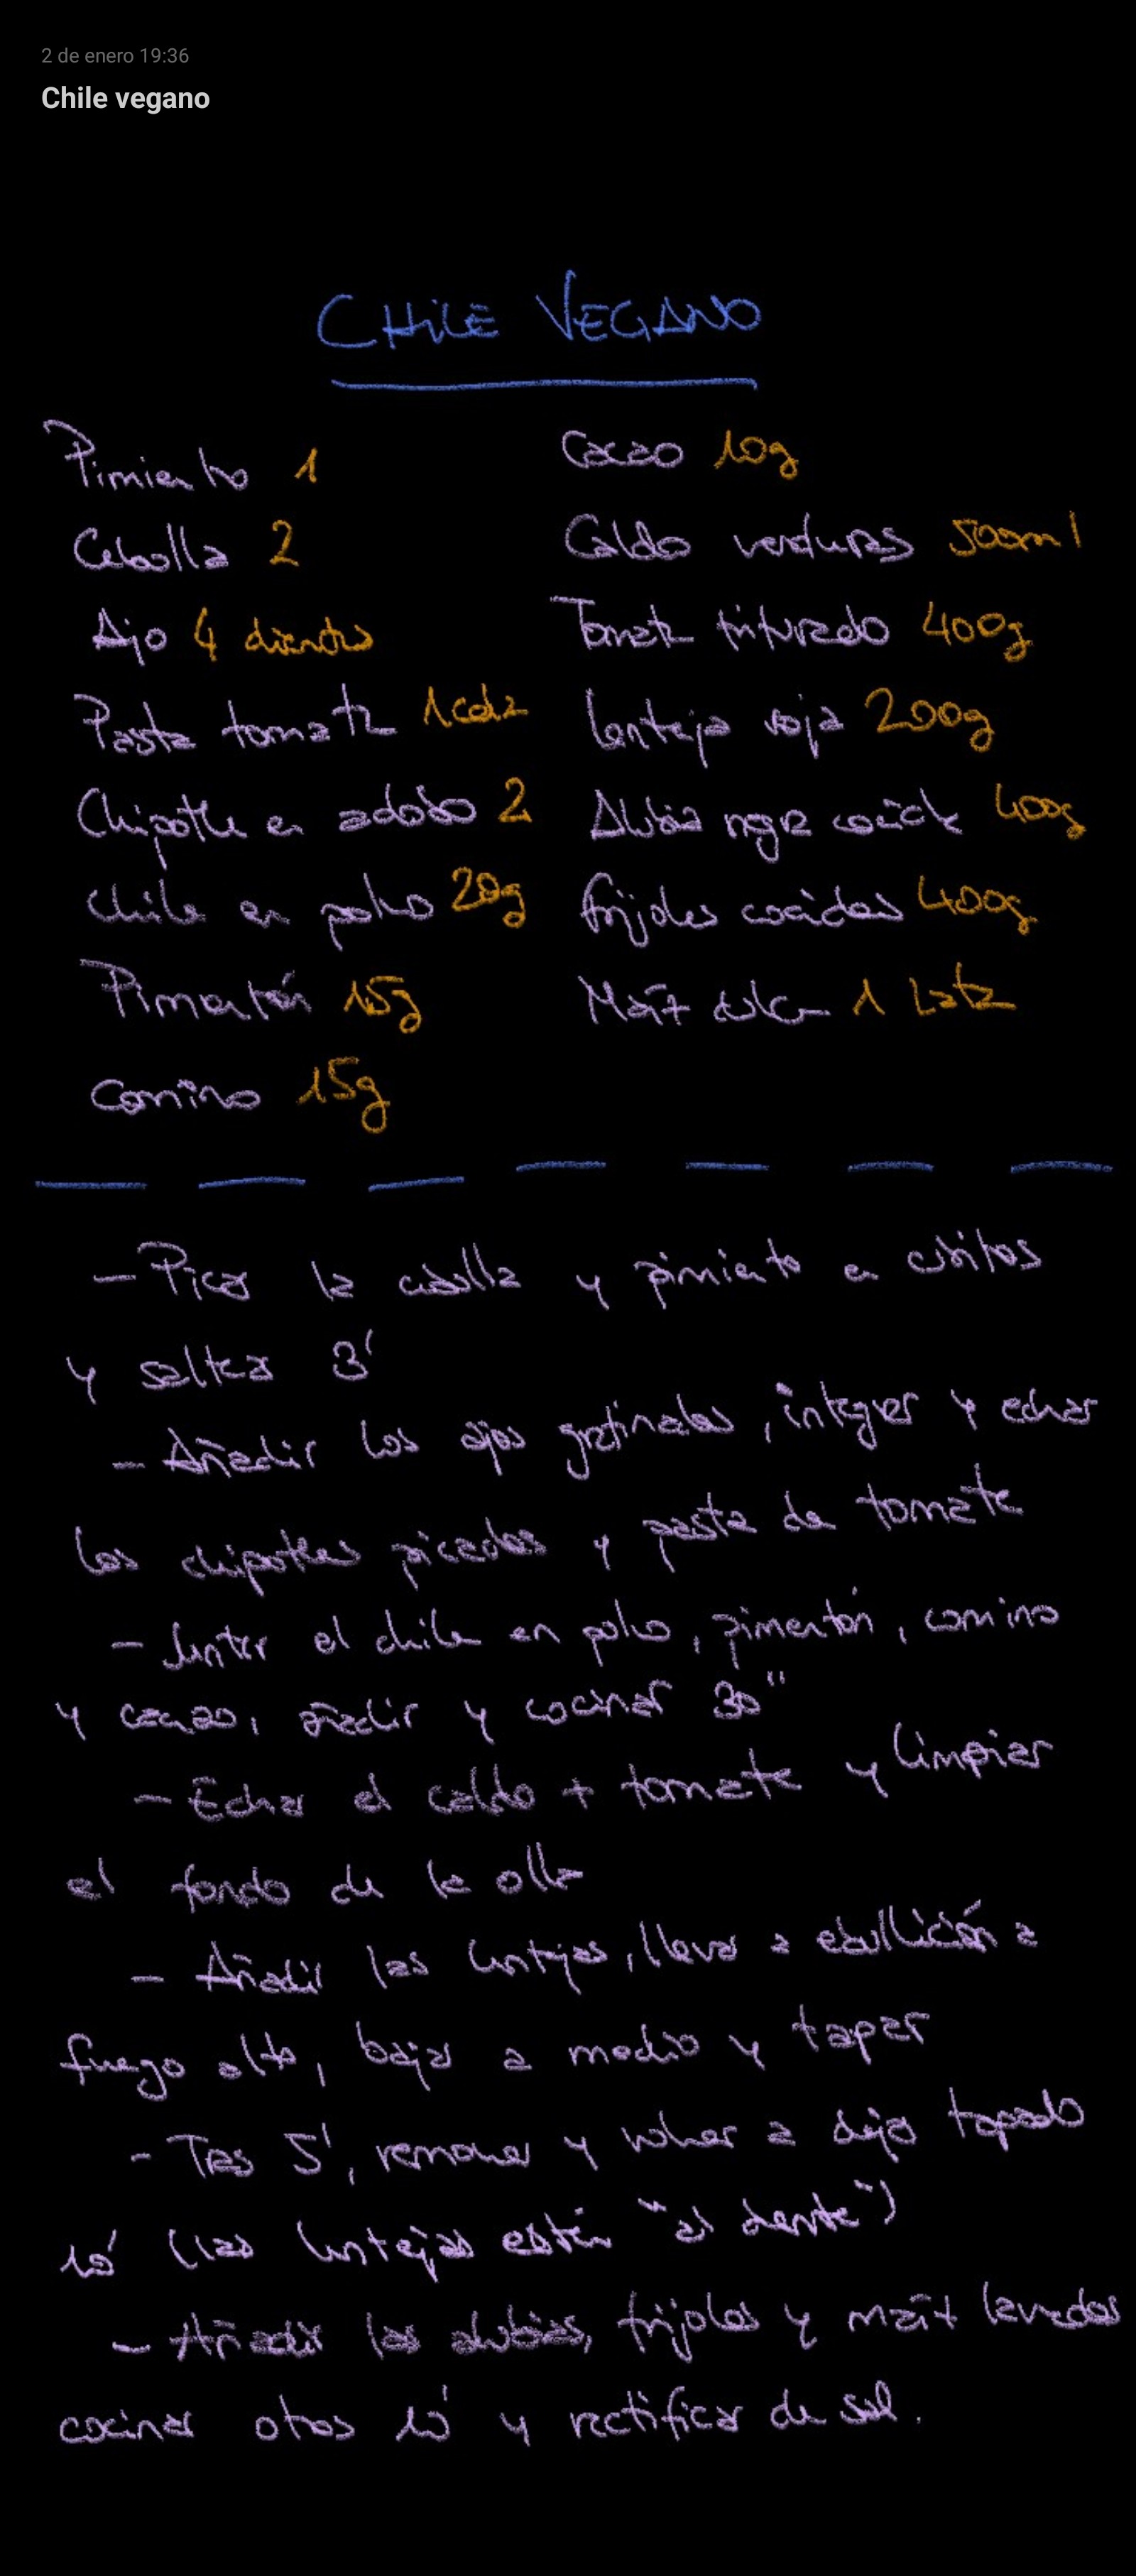 2 de enero 19:36
Chile vegano
CHILE VEGANO
Pimiento 1
Cebolla 2
Ajo 4 dientes
Pasta tomate 1 cda
Chipotle en adobo 2
Chile en polvo 20g
Pimentón 15g
Comino 15g
Cacao 10g
Caldo verduras 500ml
Tomate triturado 400g
Lenteja roja 200g
Alubia negra cocida 400g
Frijoles cocidos 400g
Maíz dulce 1 Lata
- Picar la cebolla y pimiento en cubitos
y saltear 3'
- Añadir los ajos gratinados, integrar y echar
los chipotles picados y pasta de tomate
- Juntar el chile en polvo, pimentón, comino
y cacao, añadir y cocinar 30"
- Echar el caldo + tomate y limpiar
el fondo de la olla
- Añadir las lentejas, llevar a ebullición a
fuego alto, bajar a medio y tapar
- Tras 5', remover y volver a dejar tapado
10' (las lentejas estén "al dente")
- Añadir las alubias, frijoles y maíz lavados
cocinar otros 10' y rectificar de sal.